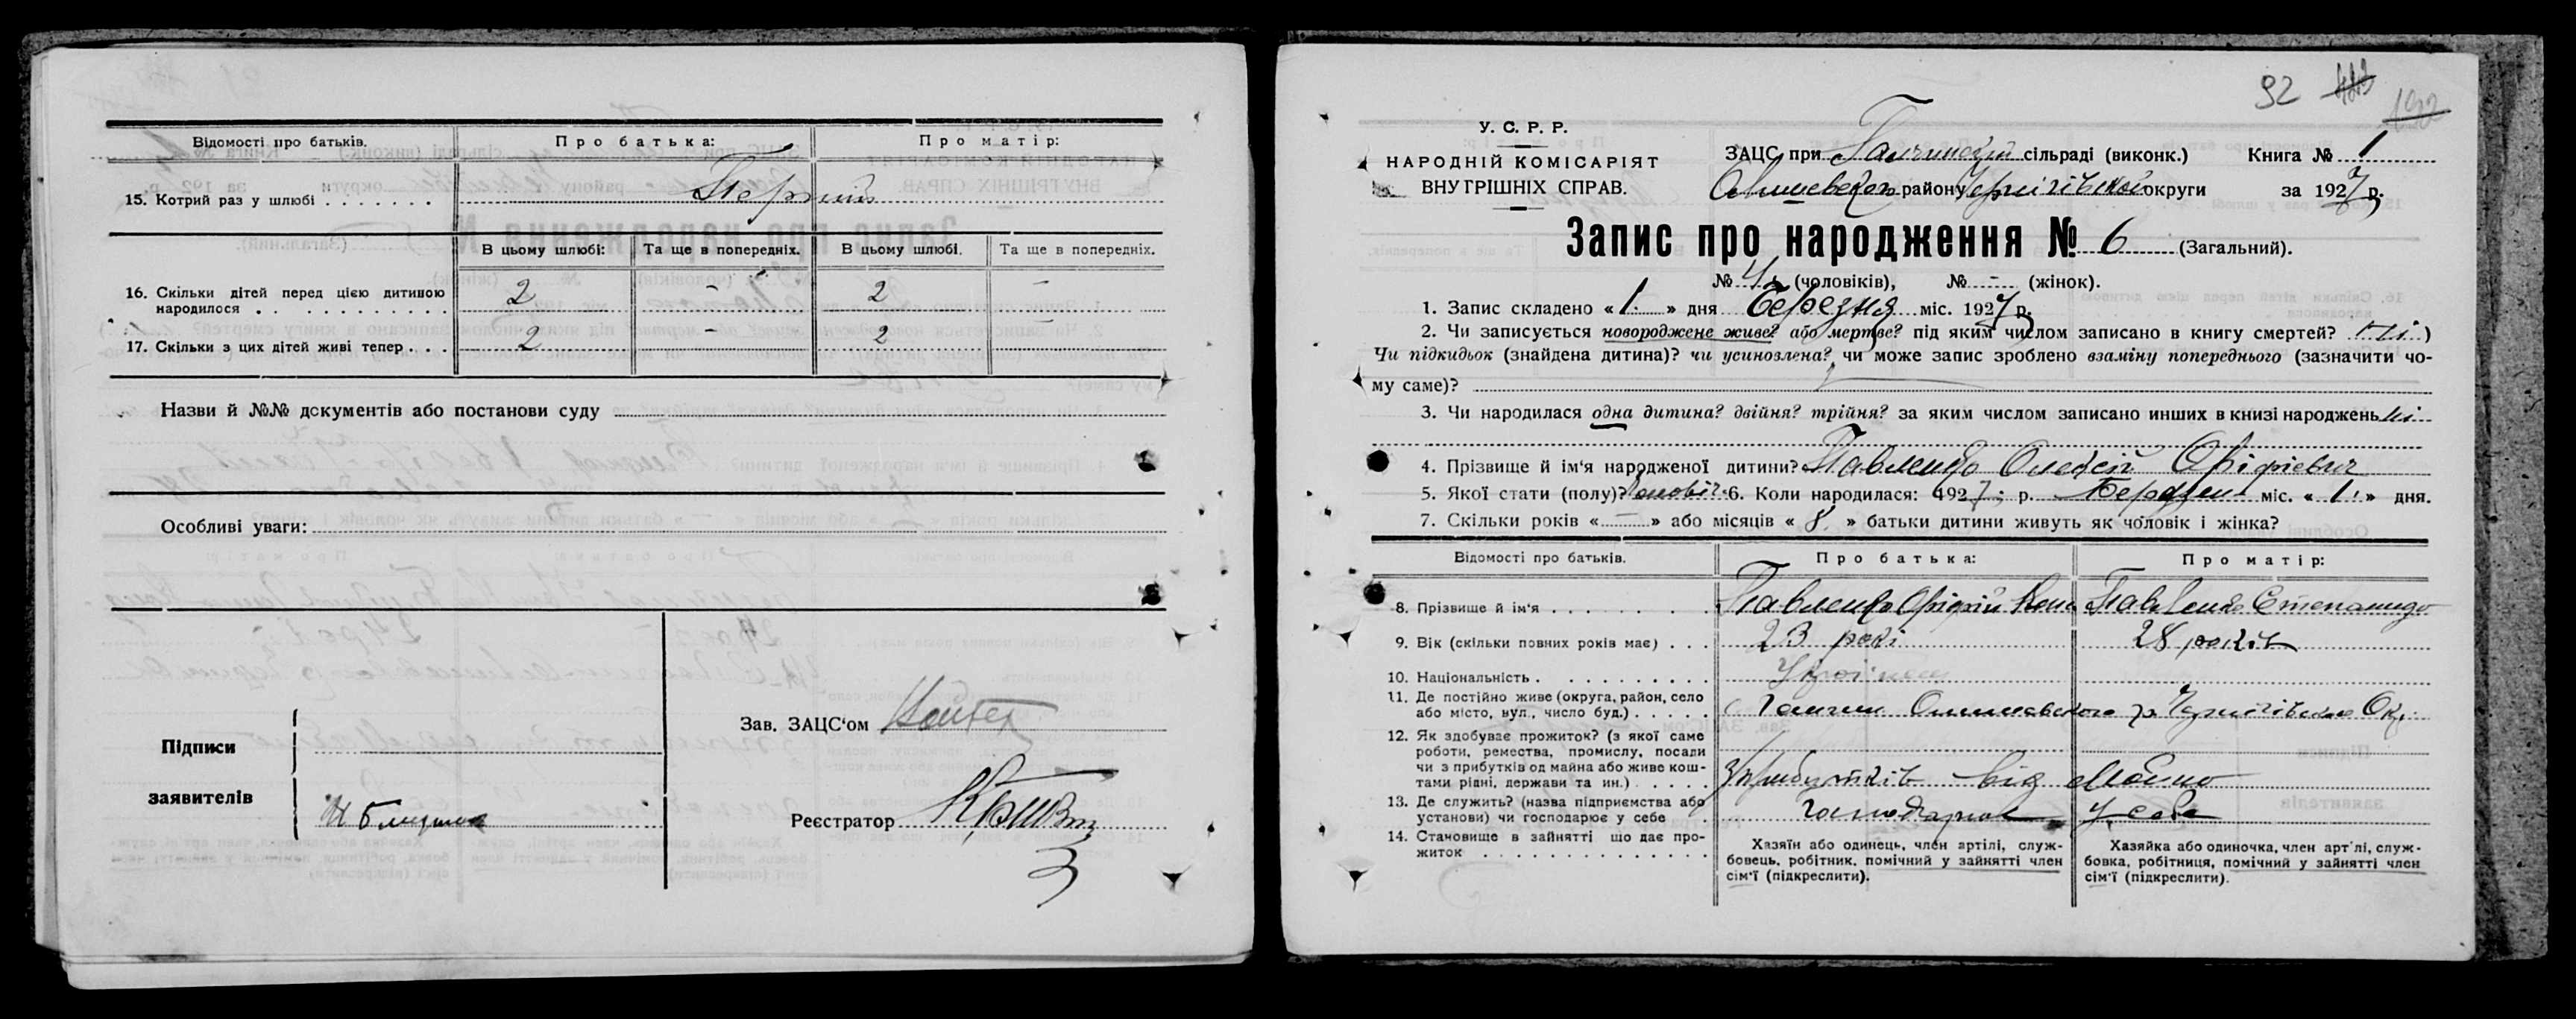 Відомості про батьків. Про батька: Про матір:
15. Котрий раз у шлюбі . . . . . . . Перший
В цьому шлюбі: Та ще в попередніх. В цьому шлюбі. Та ще в попередніх.
16. Скільки дітей перед цією дитиною
народилося . . . . . . . . . . . 2 - 2 -
17. Скільки з цих дітей живі тепер . . . 2 - 2 -
Назви й №№ документів або постанови суду
Особливі уваги:
Підписи
заявителів
Зав. ЗАЦС'ом
Реєстратор
92
У. С. Р. Р.
НАРОДНІЙ КОМІСАРІЯТ
ВНУТРІШНІХ СПРАВ.
ЗАЦС при сільраді (виконк.) Книга № 1
району Чернігівської округи за 1927 р.
Запис про народження № 6 (Загальний).
№ 4 (чоловіків), № - (жінок).
1. Запис складено «1» дня Березня міс. 1927 р.
2. Чи записується новороджене живе? або мертве? під яким числом записано в книгу смертей? ні)
Чи підкидьок (знайдена дитина)? чи усиновлена? чи може запис зроблено взаміну попереднього (зазначити чо-
му саме)?
3. Чи народилася одна дитина? двійня? трійня? за яким числом записано инших в книзі народжень ні
4. Прізвище й ім'я народженої дитини? Павленко Олексій
5. Якої стати (полу)? 6. Коли народилася: 1927 р. міс. «1» дня.
7. Скільки років « - » або місяців « 8 » батьки дитини живуть як чоловік і жінка?
Відомості про батьків. Про батька: Про матір:
8. Прізвище й ім'я . . . . . . . . Павленко Павленко Степанида
9. Вік (скільки повних років має) . . . 23 роки 28 років
10. Національність . . . . . . . . . Українец
11. Де постійно живе (округа, район, село
або місто, вул., число буд.) . . . . . Чернігівської Окр.
12. Як здобуває прожиток? (з якої саме
роботи, ремества, промислу, посади
чи з прибутків од майна або живе кош-
тами рідні, держави та ин.) . . . . . З прибутків від майна
13. Де служить? (назва підприємства або
установи) чи господарює у себе . у себе
14. Становище в зайнятті що дає про-
житок . . . . . . . . . . . . . .
Хазяїн або одинець, член артілі, служ-
бовець, робітник, помічний у зайнятті член
сім'ї (підкреслити).
Хазяйка або одиночка, член арт'лі, служ-
бовка, робітниця, помічний у зайнятті член
сім'ї (підкреслити).